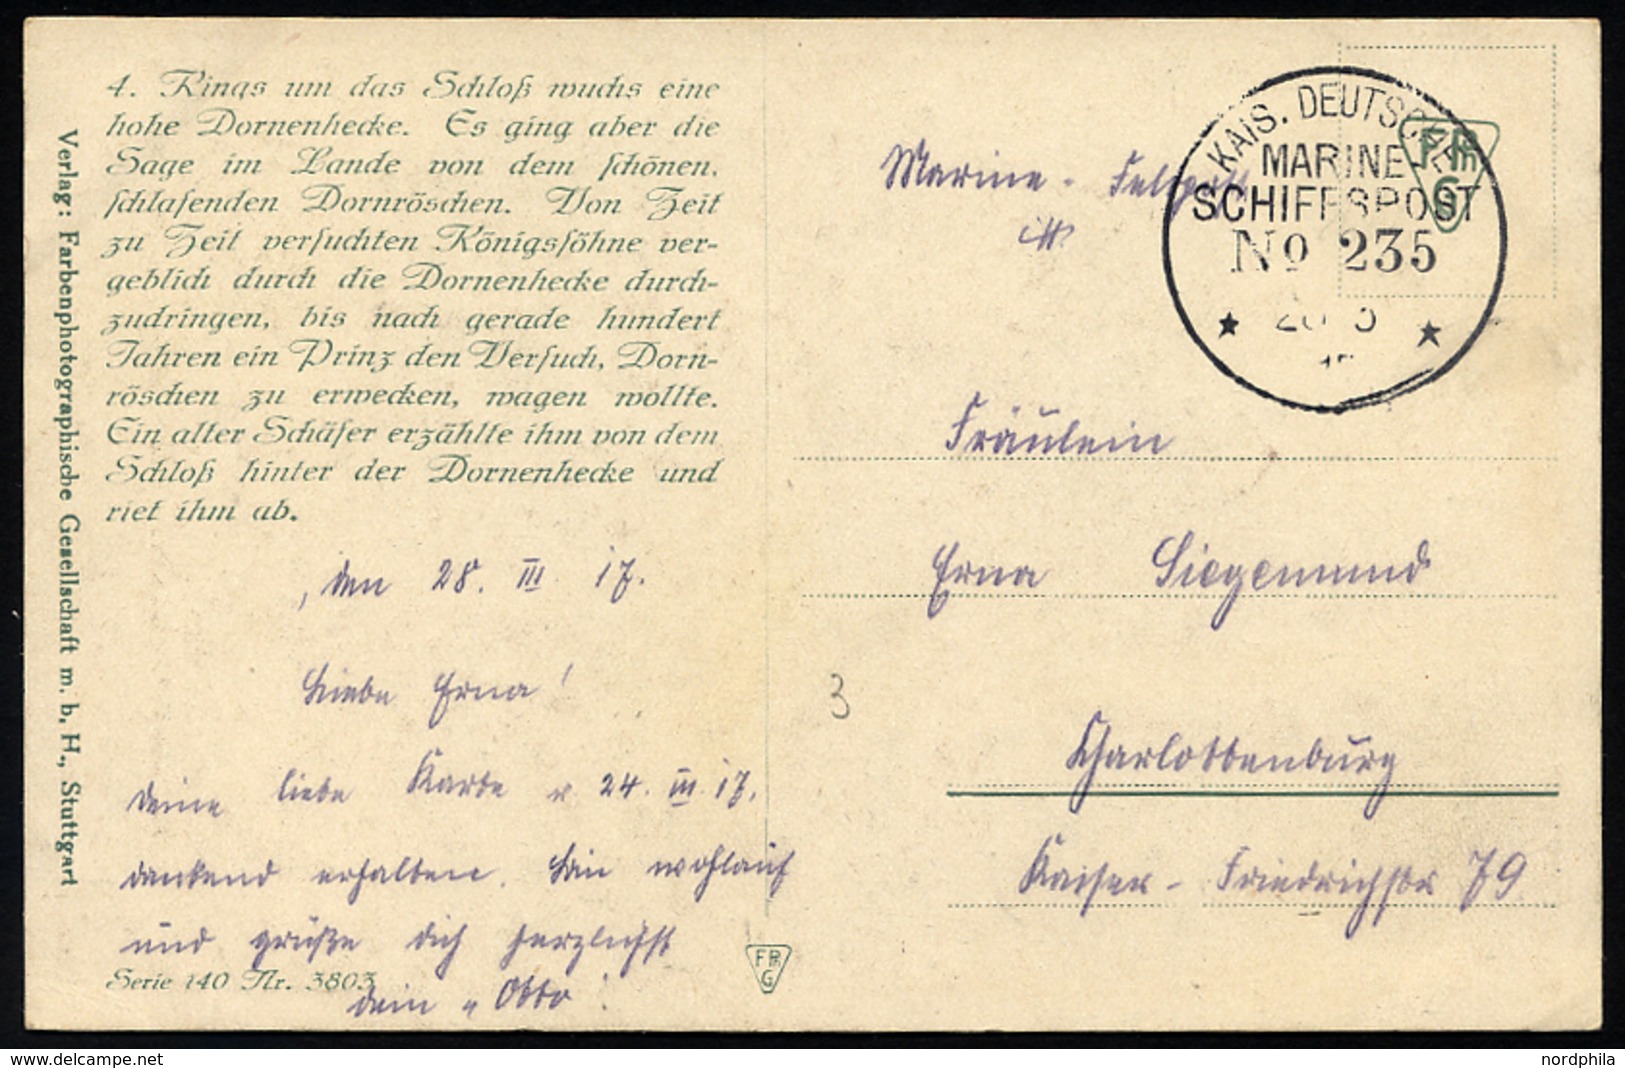 4. Rings um das Schloß wuchs eine
hohe Dornenhecke. Es ging aber die
Sage im Lande von dem schönen,
schlafenden Dornröschen. Von Zeit
zu Zeit versuchten Königssöhne ver-
geblich durch die Dornenhecke durch-
zudringen, bis nach gerade hundert
Jahren ein Prinz den Versuch, Dorn-
röschen zu erwecken, wagen wollte.
Ein alter Schäfer erzählte ihm von dem
Schloß hinter der Dornenhecke und
riet ihm ab.
, den 28. III. 17.
Liebe Erna!
Deine liebe Karte v. 24. III. 17.
dankend erhalten. Bin wohlauf
und grüße dich herzlichst
Serie 140 Nr. 3803
dein "Otto".
Verlag: Farbenphotographische Gesellschaft m. b. H., Stuttgart
FPhG
3
Marine-Feldpost
KAIS. DEUTSCHE
MARINE-
SCHIFFSPOST
No 235
FPhG
Fräulein
Erna Siegemund
Charlottenburg
Kaiser-Friedrichstr 79
nordphila
www.delcampe.net